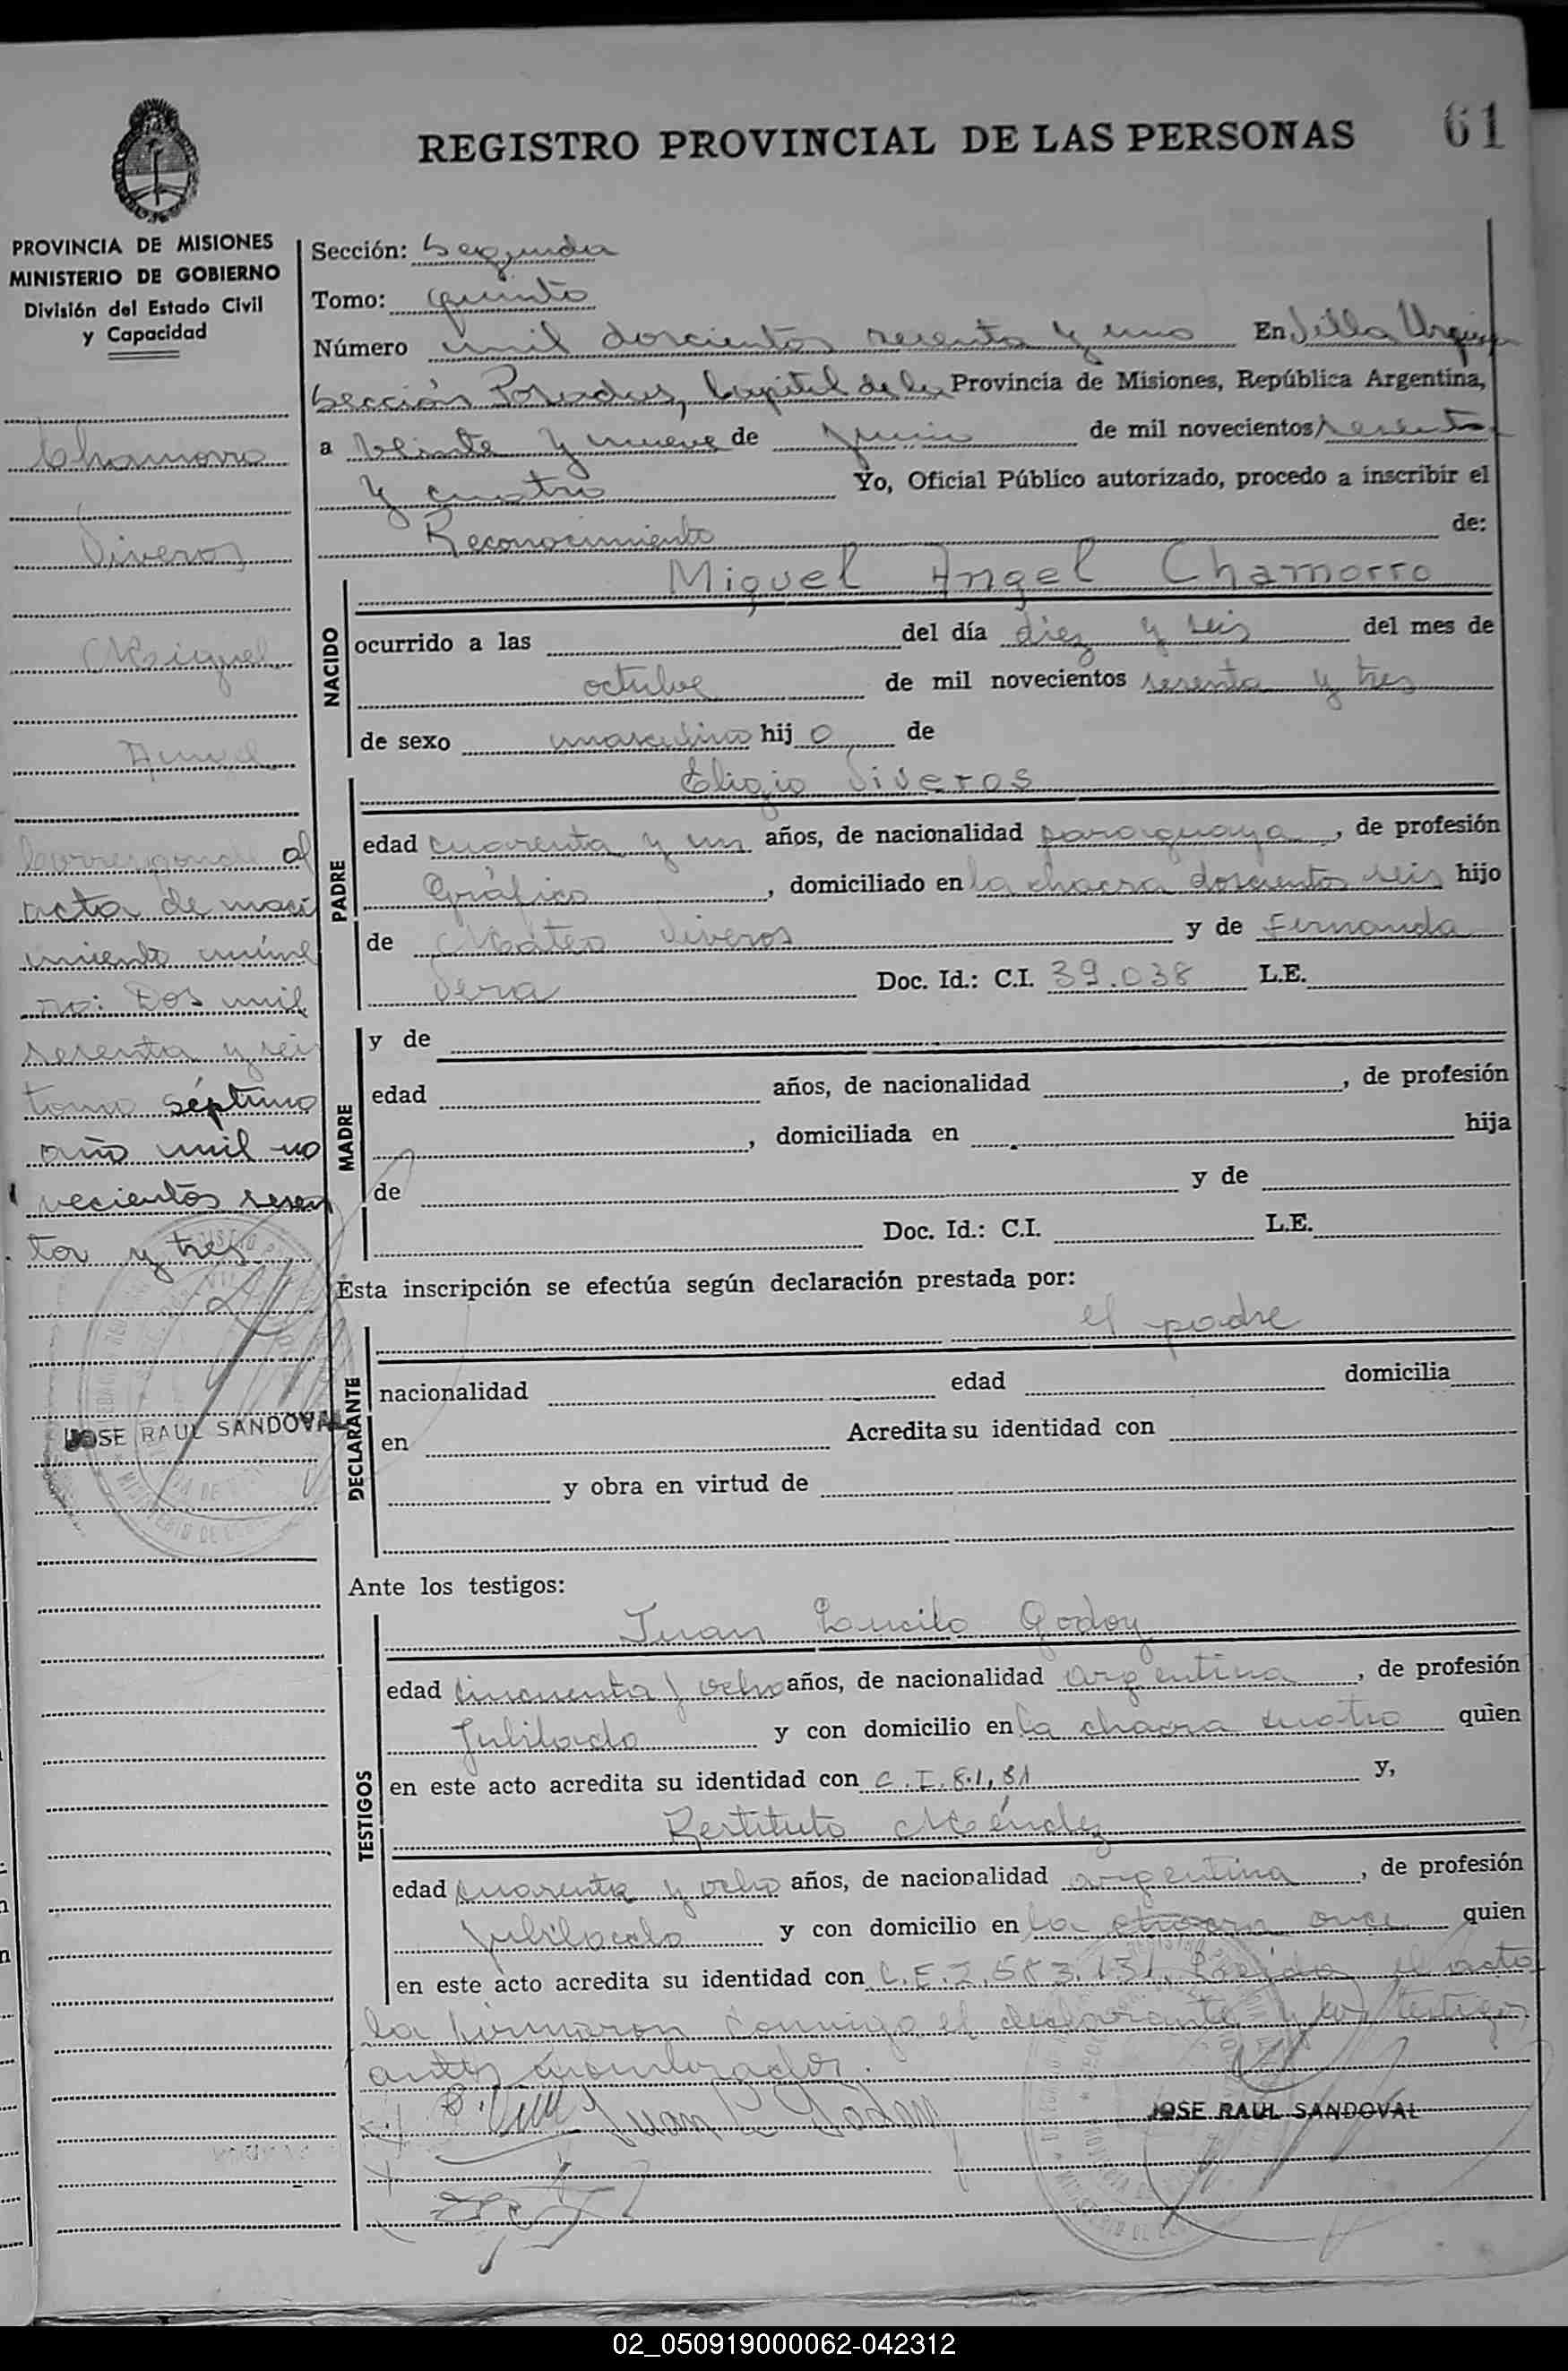 REGISTRO PROVINCIAL DE LAS PERSONAS 61
PROVINCIA DE MISIONES
MINISTERIO DE GOBIERNO
División del Estado Civil
y Capacidad
Chamorro
Viveros
Miguel
Angel
Corresponde al
acta de naci
miento núme
ro: Dos mil
sesenta y seis
tomo séptimo
año mil no
vecientos sesen
ta y tres
JOSE RAUL SANDOVAL
Sección: Segunda
Tomo: quinto
Número mil doscientos sesenta y uno En Villa Urquiza
Sección Posadas, Capital de la Provincia de Misiones, República Argentina,
a veinte y nueve de junio de mil novecientos sesenta
y cuatro Yo, Oficial Público autorizado, procedo a inscribir el
Reconocimiento de:
NACIDO
Miguel Angel Chamorro
ocurrido a las del día diez y seis del mes de
octubre de mil novecientos sesenta y tres
de sexo masculino hij o de
PADRE
Eligio Viveros
edad cuarenta y un años, de nacionalidad paraguaya, de profesión
Gráfico, domiciliado en la chacra doscientos seis hijo
de Máteo Viveros y de Fernanda
Vera Doc. Id.: C.I. 39.038 L.E.
MADRE
y de
edad años, de nacionalidad , de profesión
, domiciliada en hija
de y de
Doc. Id.: C.I. L.E.
Esta inscripción se efectúa según declaración prestada por:
DECLARANTE
el padre
nacionalidad edad domicilia
en Acredita su identidad con
y obra en virtud de
Ante los testigos:
TESTIGOS
Juan Lucilo Godoy
edad cincuenta y ocho años, de nacionalidad argentina, de profesión
Jubilado y con domicilio en la chacra cuatro quien
en este acto acredita su identidad con C.I. y,
Restituto Méndez
edad cuarenta y ocho años, de nacionalidad argentina, de profesión
jubilado y con domicilio en la chacra once quien
en este acto acredita su identidad con Leida el acta
la firmaron conmigo el declarante y los testigos
antes nombrados.
Juan L Godoy
JOSE RAUL SANDOVAL
02_050919000062-042312